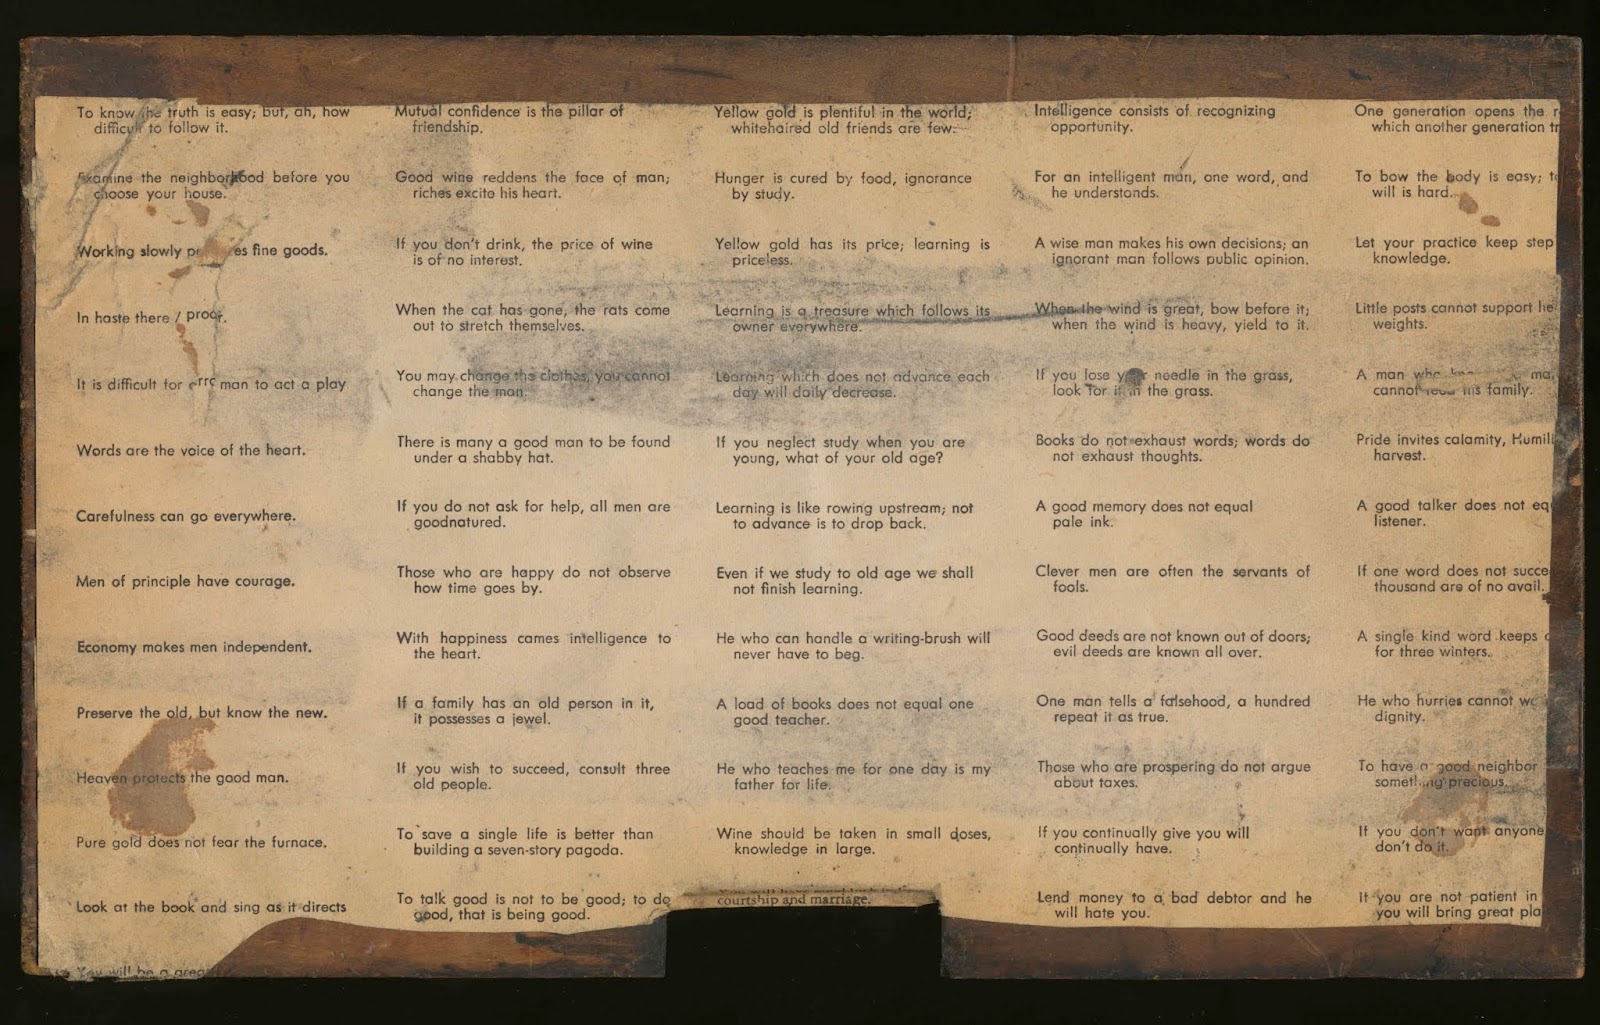 To know the truth is easy; but, ah, how
difficult to follow it.
Examine the neighborhood before you
choose your house.
Working slowly fine goods.
In haste there / proof.
It is difficult for man to act a play
Words are the voice of the heart.
Carefulness can go everywhere.
Men of principle have courage.
Economy makes men independent.
Preserve the old, but know the new.
Heaven protects the good man.
Pure gold does not fear the furnace.
Look at the book and sing as it directs
You will be a great
Mutual confidence is the pillar of
friendship.
Good wine reddens the face of man;
riches excite his heart.
If you don't drink, the price of wine
is of no interest.
When the cat has gone, the rats come
out to stretch themselves.
You may change the clothes, you cannot
change the man.
There is many a good man to be found
under a shabby hat.
If you do not ask for help, all men are
goodnatured.
Those who are happy do not observe
how time goes by.
With happiness cames intelligence to
the heart.
If a family has an old person in it,
it possesses a jewel.
If you wish to succeed, consult three
old people.
To save a single life is better than
building a seven-story pagoda.
To talk good is not to be good; to do
good, that is being good.
Yellow gold is plentiful in the world;
whitehaired old friends are few.
Hunger is cured by food, ignorance
by study.
Yellow gold has its price; learning is
priceless.
Learning is a treasure which follows its
owner everywhere.
Learning which does not advance each
day will daily decrease.
If you neglect study when you are
young, what of your old age?
Learning is like rowing upstream; not
to advance is to drop back.
Even if we study to old age we shall
not finish learning.
He who can handle a writing-brush will
never have to beg.
A load of books does not equal one
good teacher.
He who teaches me for one day is my
father for life.
Wine should be taken in small doses,
knowledge in large.
courtship and marriage.
Intelligence consists of recognizing
opportunity.
For an intelligent man, one word, and
he understands.
A wise man makes his own decisions; an
ignorant man follows public opinion.
When the wind is great, bow before it;
when the wind is heavy, yield to it.
If you lose your needle in the grass,
look for it in the grass.
Books do not exhaust words; words do
not exhaust thoughts.
A good memory does not equal
pale ink.
Clever men are often the servants of
fools.
Good deeds are not known out of doors;
evil deeds are known all over.
One man tells a falsehood, a hundred
repeat it as true.
Those who are prospering do not argue
about taxes.
If you continually give you will
continually have.
Lend money to a bad debtor and he
will hate you.
One generation opens the
which another generation
To bow the body is easy;
will is hard.
Let your practice keep step
knowledge.
Little posts cannot support
weights.
A man who
cannot his family.
Pride invites calamity,
harvest.
A good talker does not
listener.
If one word does not
thousand are of no avail.
A single kind word keeps
for three winters.
He who hurries cannot
dignity.
To have a good neighbor
something precious.
If you don't want anyone
don't do it.
If you are not patient in
you will bring great